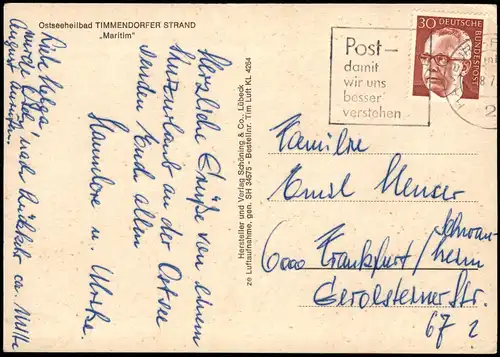 Ostseeheilbad TIMMENDORFER STRAND
„Maritim“
Herzliche Grüße von einem
Kurzurlaub an der Ostsee
senden Euch allen
Hannelore u.
Liebe Helga,
werde Ebbi nach Rückkehr ca. Mitte
August anrufen.
Hersteller und Verlag Schöning & Co., Lübeck
ze Luftaufnahme, gen. SH 34675 - Bestellnr. Tim Luft KL 4264
Post –
damit
wir uns
besser
verstehen
30 DEUTSCHE
BUNDESPOST
Familie
Emil
6000 Frankfurt/
Schwan-
heim
Gerolsteiner Str.
67